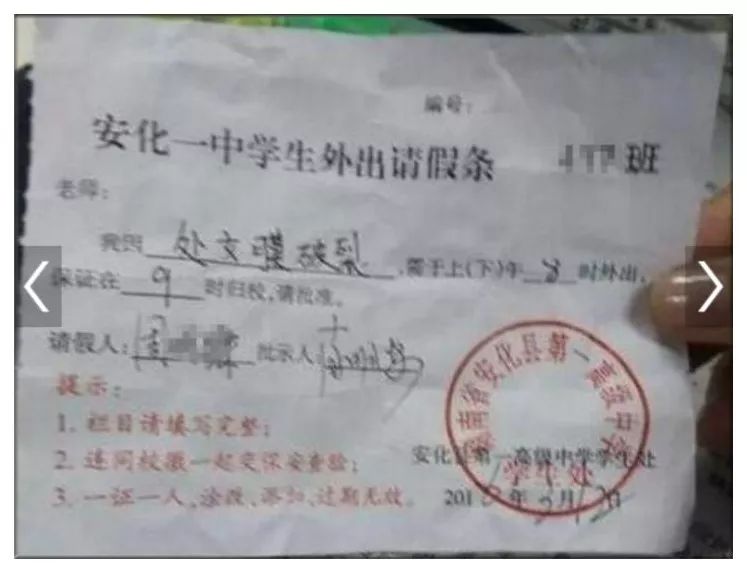 编号:
安化一中学生外出请假条 班
老师:
我因 处女膜破裂 ,需于上(下)午 8 时外出,
保证在 9 时归校,请批准。
请假人: 批示人:
提示:
1. 栏目请填写完整;
2. 连同校徽一起交保安查验;
3. 一证一人,涂改、添加、过期无效。
湖南省安化县第一高级中学
学生处
安化县第一高级中学学生处
201 年 月 日